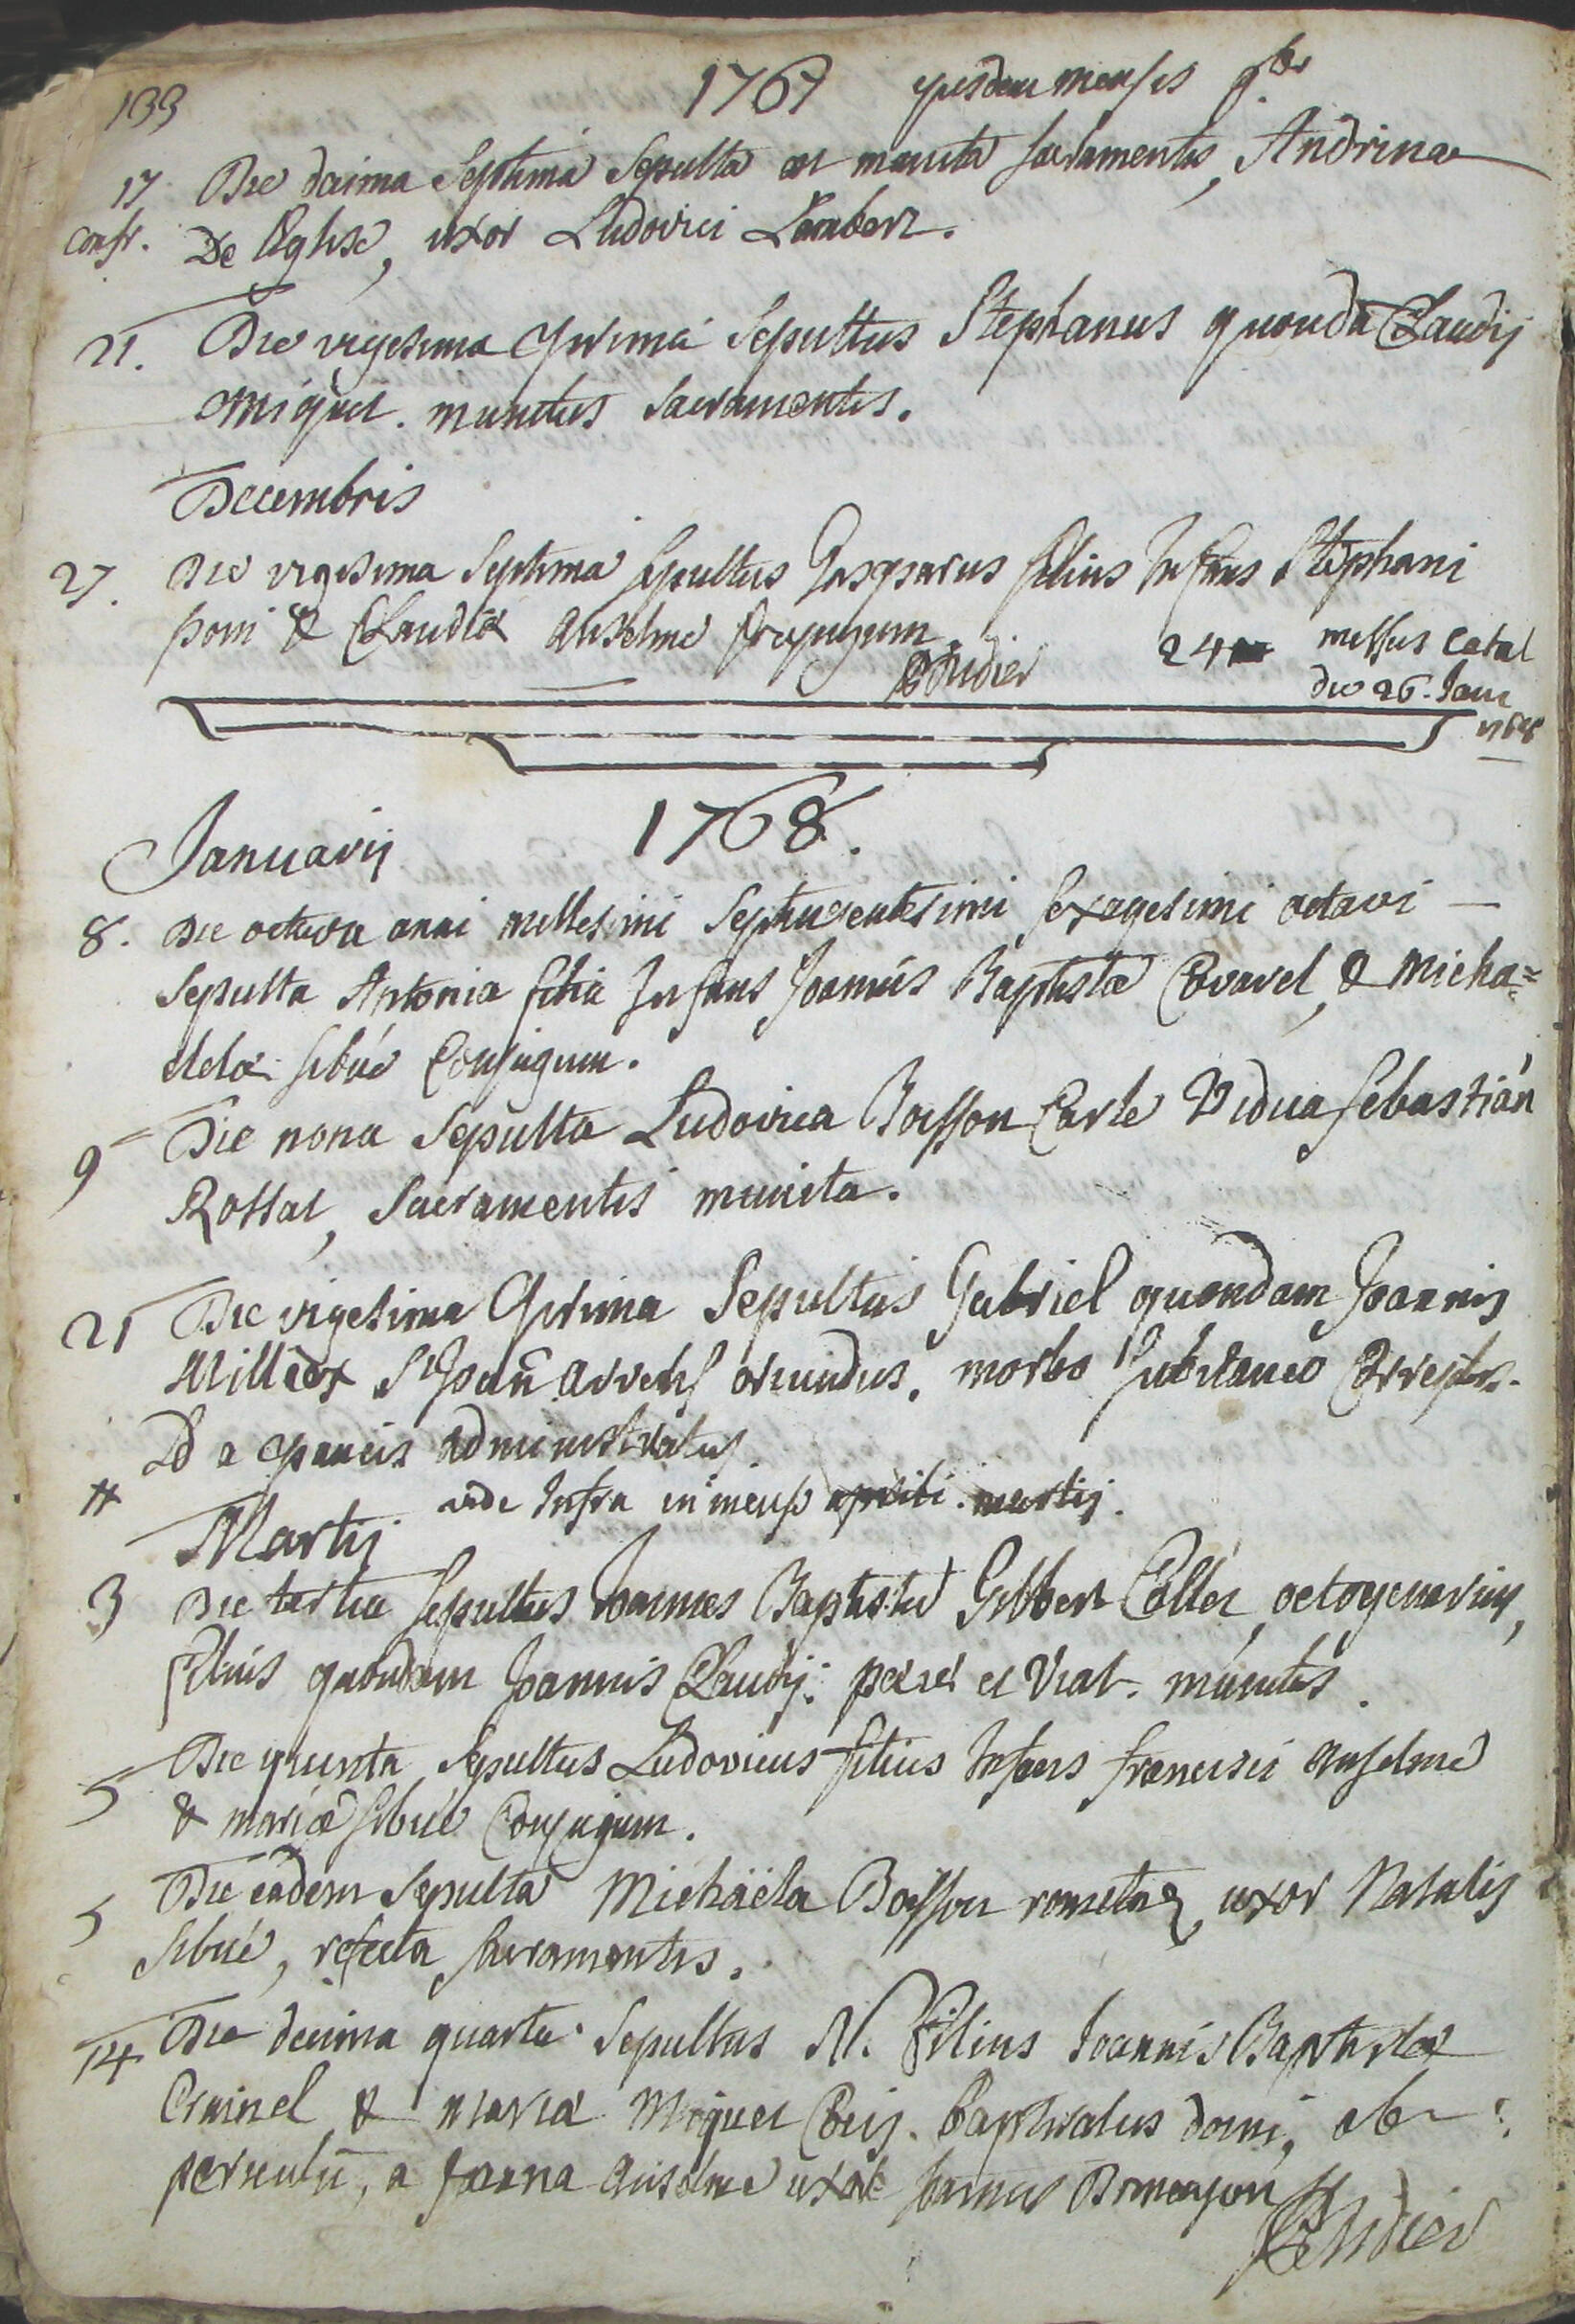 193 1767 ejusdem mensis 9bris
17 Die decima Septima Sepulta est munita sacramentis, Andrina
Confr. De Eglise, uxor Ludovici Lambert.
21. Die vigesima prima Sepultus Stephanus quondā Claudij
Miquet. munitus Sacramentis.
Decembris
27. Die vigesima Septima sepultus Gasparus filius Infans Stephani
& Claudiæ Anselme
24 missus Catal
die 26. Janu
1768
1768.
Januarij
8. Die octava anni millesimi Septingentesimi sexagesimi octavi —
Sepulta Antonia filia Infans Joannis Baptistæ Covarel, & Micha=
elelæ Sibué Conjugum.
9 Die nona Sepulta Ludovica Boisson Carle Vidua Sebastian
Rossat, Sacramentis munita.
21 Die vigesima prima Sepultus Gabriel quondam Joannis
Millioz St Joan̄ Arvens oriundus. morbo subitaneo Correptus.
administratus
# vide Infra in mense aprili. martij.
Martij
3 Die tertia sepultus Joannes Baptista Gilbert Collet, octogenarius,
filius quondam Joannis Claudij: et Viat. munitus.
5 Die quinta Sepultus Ludovicus filius Infans francisci Anselme
& mariæ Sibué Conjugum.
5 Die eadem Sepulta Michaëla Boisson rometaz, uxor Natalis
Sibué, refecta sacramentis.
14 Die decima quarta Sepultus N. Filius Joannis Baptistæ
& Maria Miquet Conj. baptisatus domi, ob
periculū, a Joanna Anselme uxore Joannis